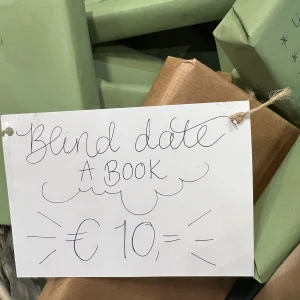 Blind date
A BOOK
€ 10,=